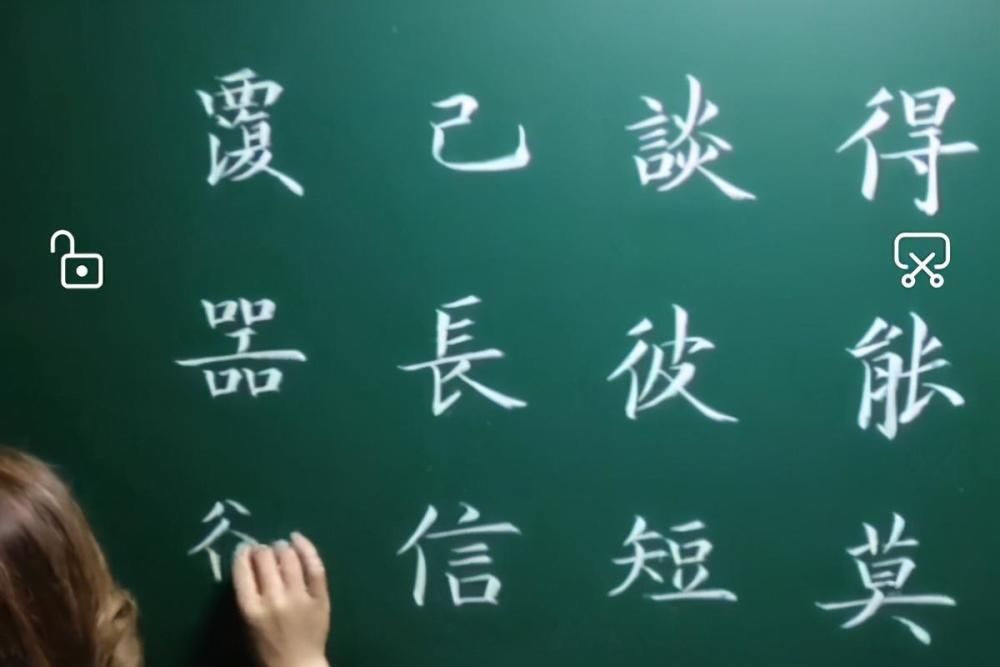 得能莫
談彼短
己長信
覆噐